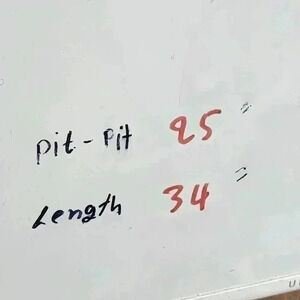 pit - pit 25"
Length 34"